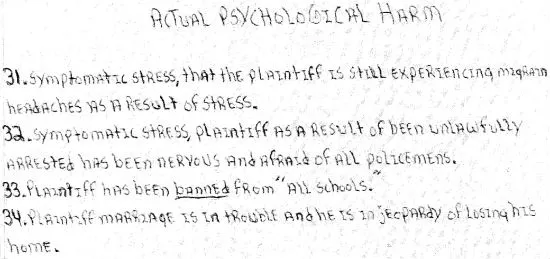 ACTUAL PSYCHOLOGICAL HARM
31. Symptomatic STRESS, that the Plaintiff is still EXPERIENCING migrain
headaches AS A RESULT of STRESS.
32. Symptomatic STRESS, plaintiff AS A RESULT of BEEN unlawfully
ARRESTED has BEEN NERVOUS and afraid of All policemens.
33. Plaintiff has BEEN banned from "All schools."
34. Plaintiff MARRIAGE IS in tROUBLE And he is in jeopardy of losing his
home.